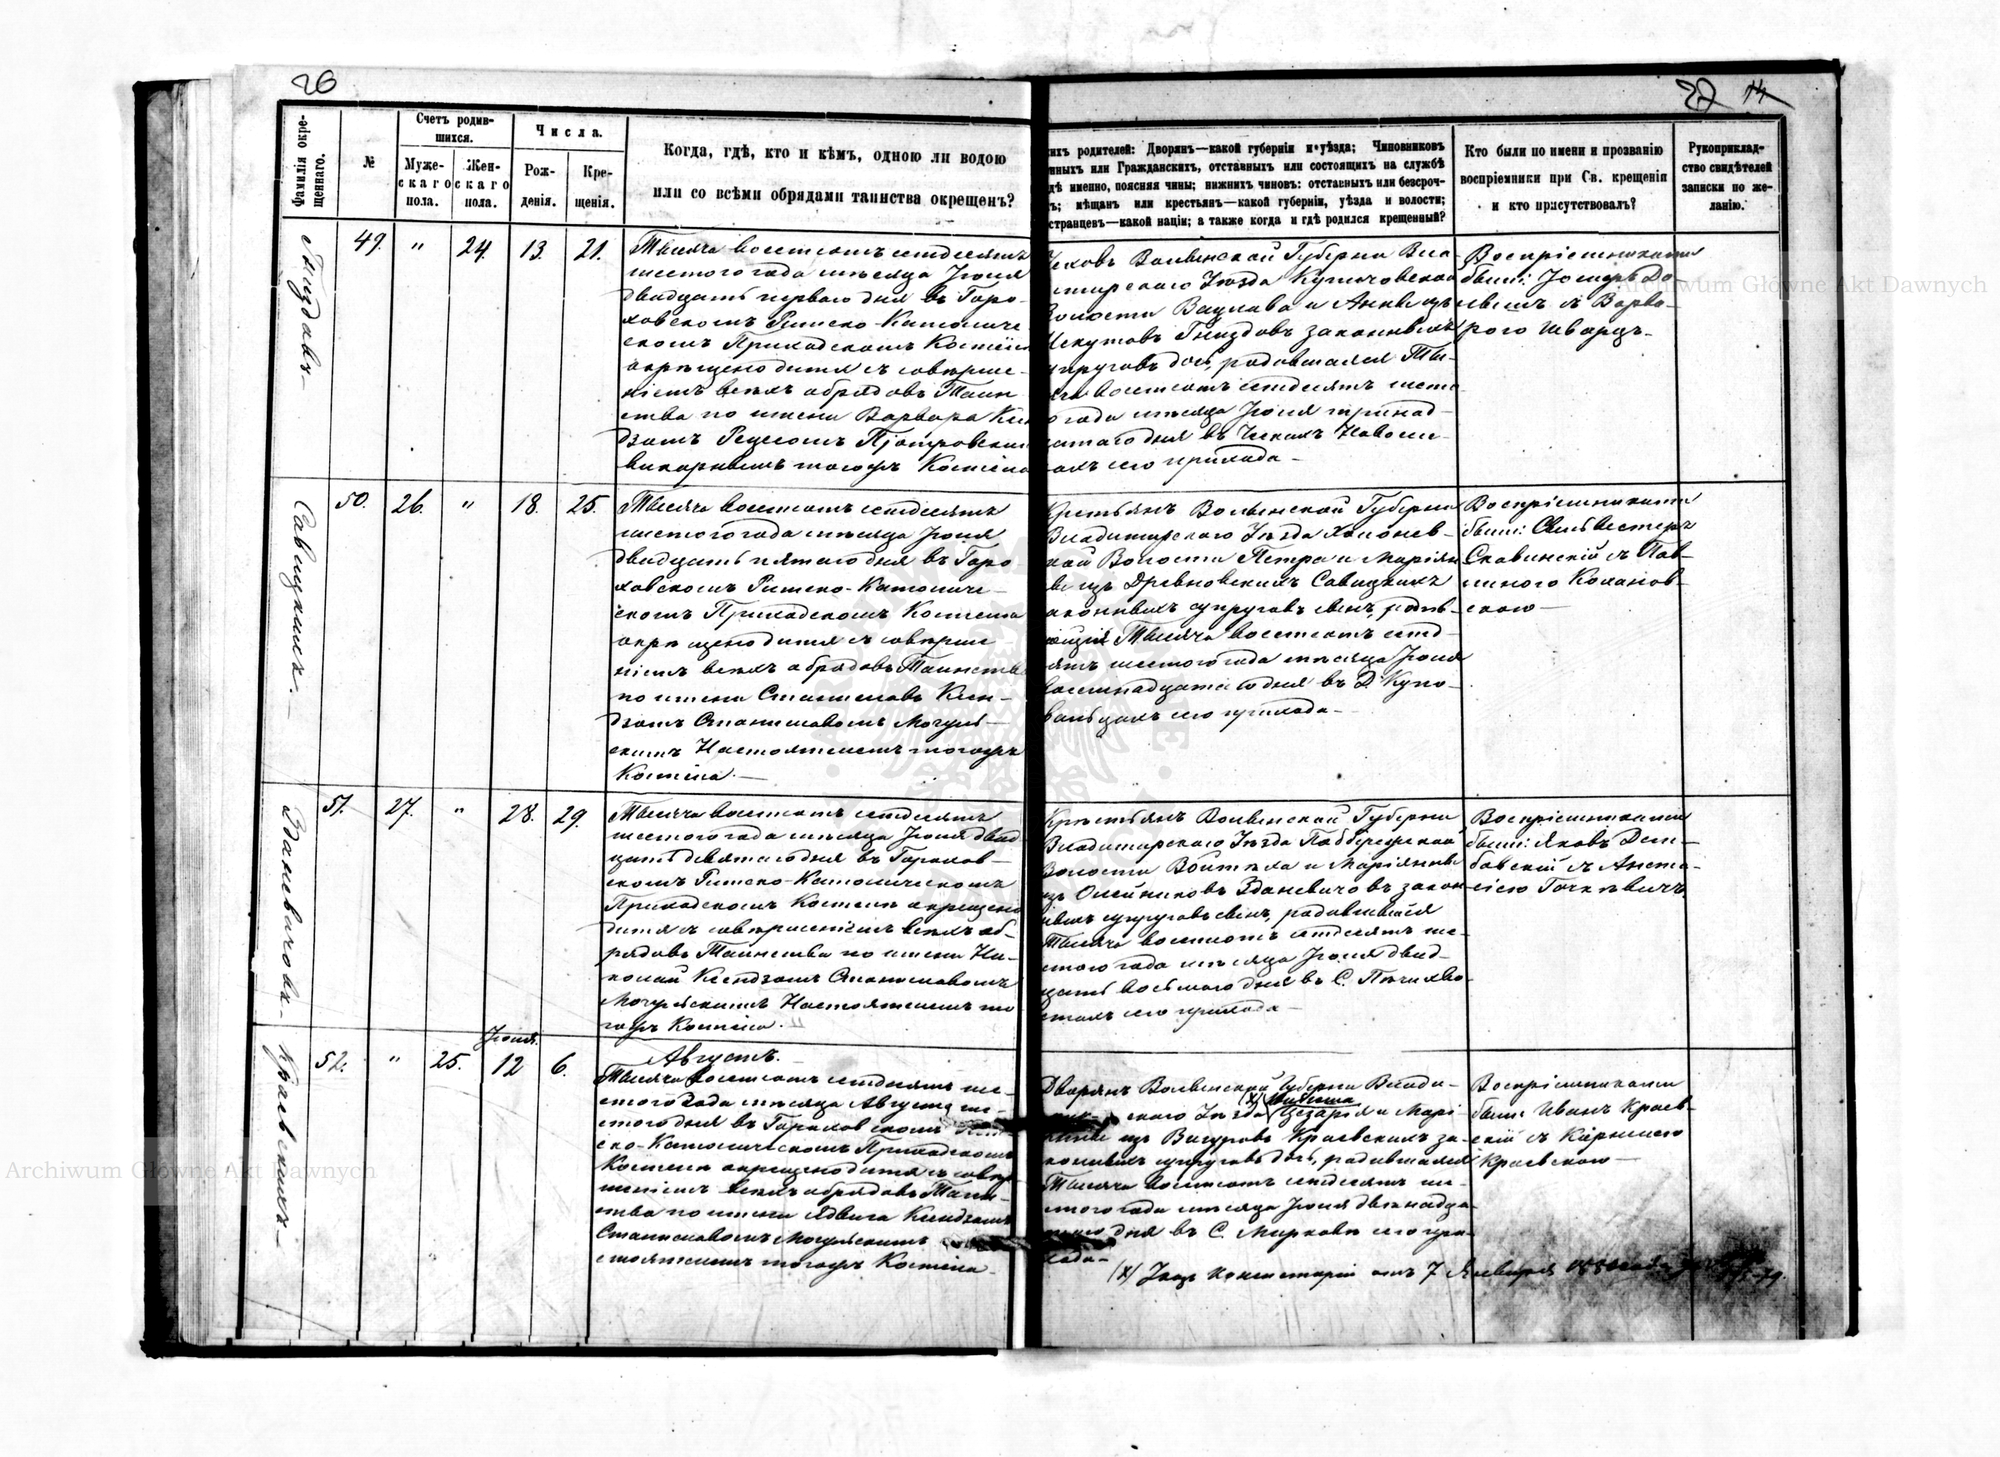 26
27 14
Фамилія окре-
щеннаго.
№
Счетъ родив-
шихся.
Муже-
скаго
пола.
Жен-
скаго
пола.
Числа.
Рож-
денія.
Кре-
щенія.
Когда, гдѣ, кто и кѣмъ, одною ли водою
или со всѣми обрядами таинства окрещенъ?
ихъ родителей: Дворянъ—какой губерніи и уѣзда; Чиновниковъ
нныхъ или Гражданскихъ, отставныхъ или состоящихъ на службѣ
дѣ именно, поясняя чины; нижнихъ чиновъ: отставныхъ или безсроч-
ъ; мѣщанъ или крестьянъ—какой губерніи, уѣзда и волости;
странцевъ—какой націи; а также когда и гдѣ родился крещенный?
Кто были по имени и прозванію
воспріемники при Св. крещеніи
и кто присутствовалъ?
Рукоприклад-
ство свидѣтелей
записки по же-
ланію.
49. " 24. 13. 21.
Тысяча восемсотъ семдесятъ
шестого года мѣсяца Іюля
двадцать первого дня въ Горо-
ховскомъ Римско-Католиче-
скомъ Приходскомъ Костелѣ
окрещено дитя съ соверше-
ніемъ всѣхъ обрядовъ Таин-
ства по имени Варвара Ксен-
дзомъ
викарнымъ тогожъ Костела
Чеховъ Волынской Губерніи Вла-
димирскаго Уѣзда Купичовской
Волости Вацлава и Анны изъ
Гнездовъ законныхъ
супруговъ дочь, родившаяся Ты-
сяча восемсотъ семдесятъ шесто-
го года мѣсяца Іюля тринад-
цатаго дня въ Чехахъ Новоси-
лкахъ сего прихода—
Воспріемниками
были: Іосифъ До-
съ Варва-
рою Шварцъ—
Савицкихъ.—
50. 26. " 18. 25.
Тысяча восемсотъ семдесятъ
шестого года мѣсяца Іюля
двадцать пятаго дня въ Горо-
ховскомъ Римско-Католиче-
скомъ Приходскомъ Костелѣ
окрещено дитя съ соверше-
ніемъ всѣхъ обрядовъ Таинства
по имени Станиславъ Ксен-
дзомъ Станиславомъ Могуль-
скимъ Настоятелемъ тогожъ
Костела.—
Крестьянъ Волынской Губерніи
Владимирскаго Уѣзда Холонев-
ской Волости Петра и Маріян-
ны изъ Древновскихъ Савицкихъ
законныхъ супруговъ сынъ, родив-
шійся Тысяча восемсотъ семд-
сятъ шестого года мѣсяца Іюля
восемнадцатаго дня въ Д. Купо-
вальцахъ сего прихода—
Воспріемниками
были: Сильвестеръ
Славинскій съ Пав-
линою Коханов-
скою—
Здановичовъ.—
51. 27. " 28. 29.
Тысяча восемсотъ семдесятъ
шестого года мѣсяца Іюля двад-
цать девятаго дня въ Горохов-
скомъ Римско-Католическомъ
Приходскомъ Костелѣ окрещено
дитя съ совершеніемъ всѣхъ об-
рядовъ Таинства по имени Ни-
колай Ксендзомъ Станиславомъ
Могульскимъ Настоятелемъ то-
гожъ Костела.
Крестьянъ Волынской Губерніи
Владимирскаго Уѣзда Подбережской
Волости Войтѣха и Маріянны
изъ Олейниковъ Здановичовъ закон-
ныхъ супруговъ сынъ, родившійся
Тысяча восемсотъ семдесятъ ше-
стого года мѣсяца Іюля двад-
цать восьмого дня въ С. Печихво-
стахъ сего прихода—
Воспріемниками
были: Яковъ Дем-
бовскій съ Анста-
сіею
Краевскихъ.—
Іюля.
52. " 25. 12 6.
Августъ.—
Тысяча восемсотъ семдесятъ ше-
стого года мѣсяца Августа ше-
стого дня въ Гороховскомъ Рим-
ско-Католическомъ Приходскомъ
Костелѣ окрещено дитя съ совер-
шеніемъ всѣхъ обрядовъ Таин-
ства по имени Ядвига Ксендзомъ
Станиславомъ Могульскимъ
стоятелемъ тогожъ Костела.—
Дворянъ Волынской Губерніи Влади-
скаго Уѣзда (х) Цезарія и Марі-
анны изъ Краевскихъ за-
конныхъ супруговъ дочь, родившаяся
Тысяча восемсотъ семдесятъ ше-
стого года мѣсяца Іюля двѣнадца-
таго дня въ С. Марковѣ сего при-
хода—
Воспріемниками
были: Иванъ Краев-
скій съ
Краевскою—
(х) Указ Консисторіи отъ 7 Января
Archiwum Główne Akt Dawnych
Archiwum Główne Akt Dawnych